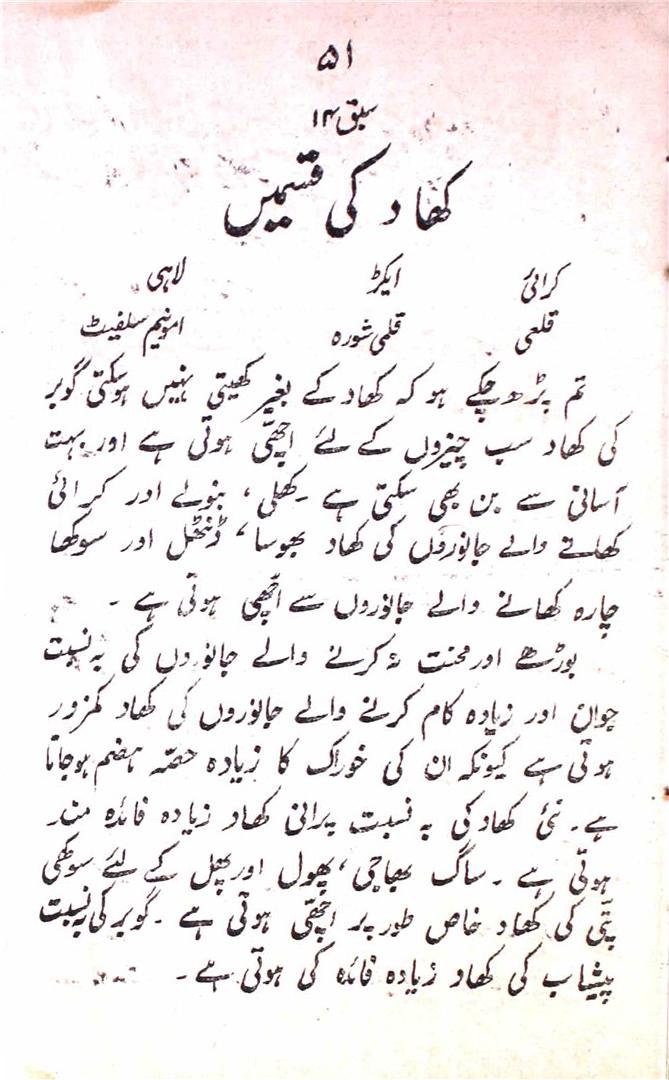 ۵۱
سبق ۱۴
کھاد کی قسمیں
کرائی ایکڑ لاہی
قلعی قلمی شورہ امونیم سلفیٹ
تم پڑھ چکے ہو کہ کھاد کے بغیر کھیتی نہیں ہو سکتی گوبر
کی کھاد سب چیزوں کے لئے اچھی ہوتی ہے اور بہت
آسانی سے بن بھی سکتی ہے ۔ کھلی، بنولے اور کرائی
کھلتے والے جانوروں کی کھاد بھوسا، ڈنٹھل اور سوکھا
چارہ کھانے والے جانوروں سے اچھی ہوتی ہے ۔
بوڑھے اور محنت نہ کرنے والے جانوروں کی بہ نسبت
جوان اور زیادہ کام کرنے والے جانوروں کی کھاد کمزور
ہوتی ہے کیونکہ ان کی خوراک کا زیادہ حصّہ ہضم ہو جاتا
ہے ۔ نئی کھاد کی بہ نسبت پرانی کھاد زیادہ فائدہ مند
ہوتی ہے ۔ ساگ بھاجی، پھول اور پھل کے لئے سوکھی
پتّی کی کھاد خاص طور پر اچھی ہوتی ہے ۔ گوبر کی بہ نسبت
پیشاب کی کھاد زیادہ فائدہ کی ہوتی ہے ۔